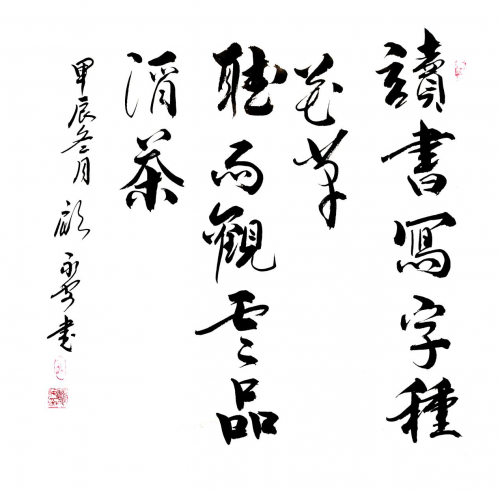 讀書寫字種
花草
聽雨觀雲品
酒茶
甲辰冬月 顧永書